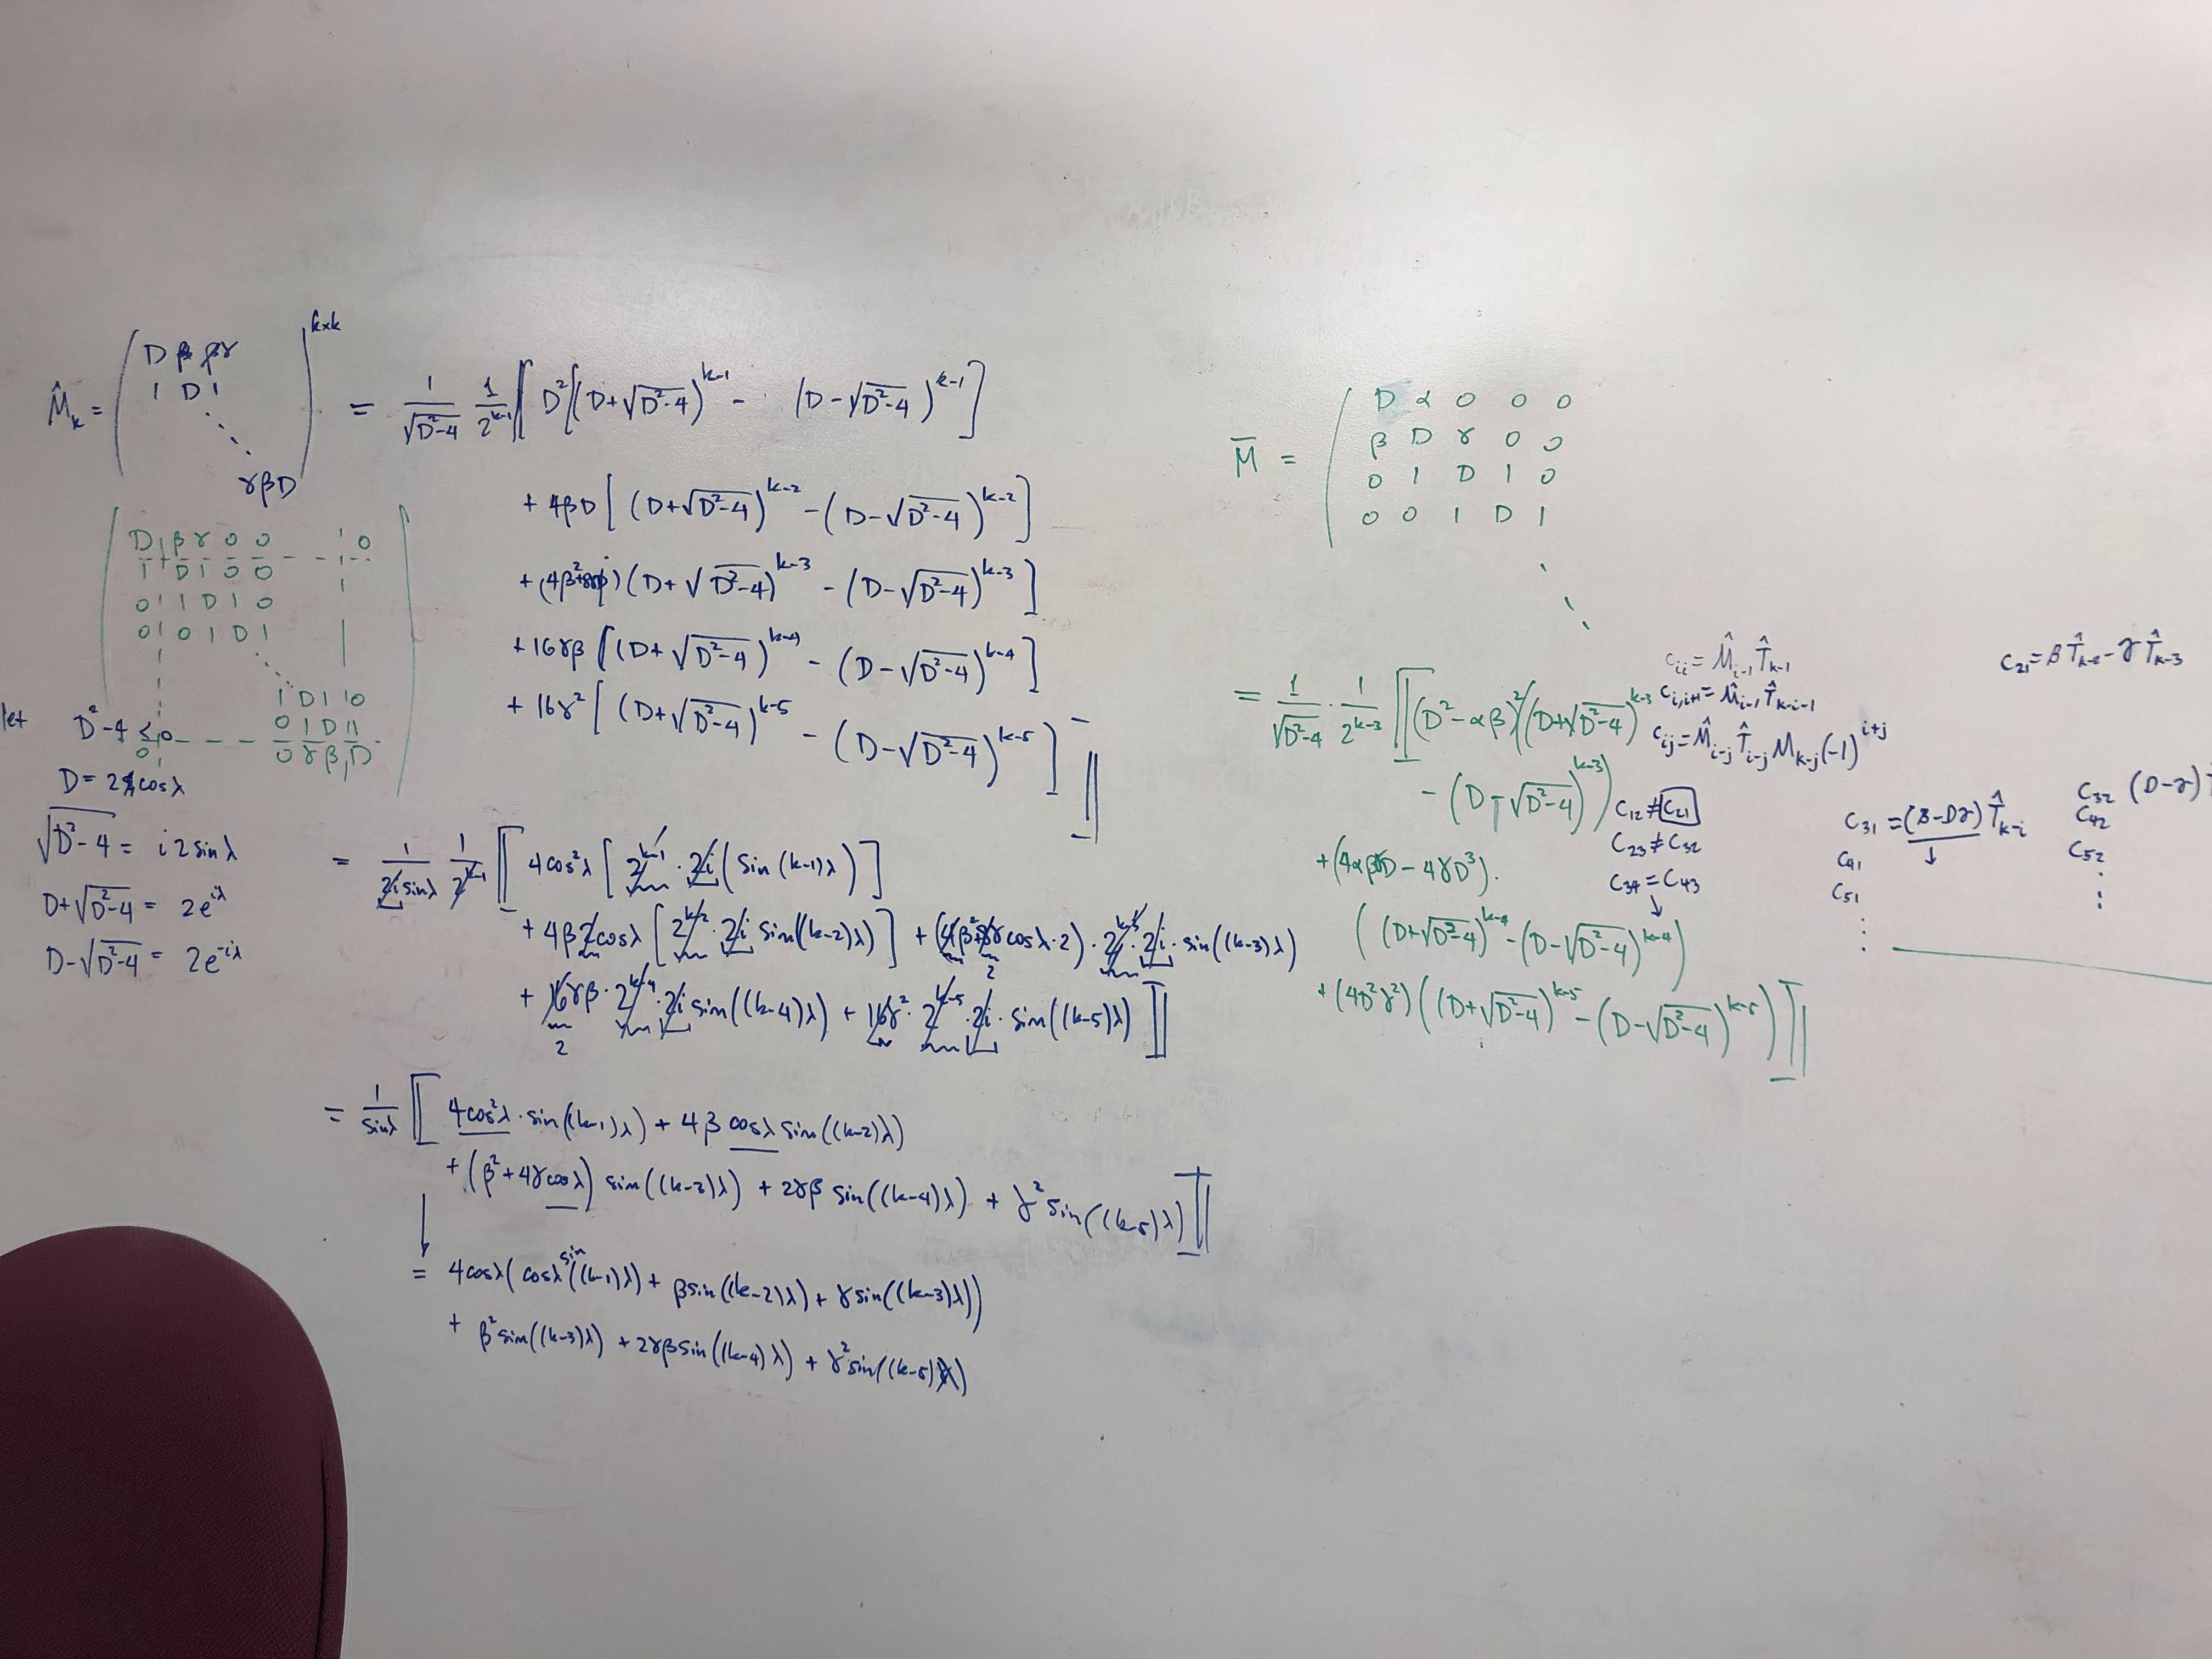 M̂ₖ = ( D β γ
1 D 1
⋱
γ β D )^{k×k} = 1/√(D²-4) 1/2^{k-1} [[ D²[(D+√(D²-4))^{k-1} - (D-√(D²-4))^{k-1}]
+ 4βD [(D+√(D²-4))^{k-2} - (D-√(D²-4))^{k-2}]
+ (4β²+8γD)(D+√(D²-4))^{k-3} - (D-√(D²-4))^{k-3}]
+ 16γβ [(D+√(D²-4))^{k-4} - (D-√(D²-4))^{k-4}]
+ 16γ² [(D+√(D²-4))^{k-5} - (D-√(D²-4))^{k-5}] ]]
D β γ 0 0 - - - 0
1 D 1 0 0
0 1 D 1 0
0 0 1 D 1
1 D 1 0
0 1 D 1
0 - - - 0 γ β D
let D²-4 ≤ 0
D = 2cosλ
√(D²-4) = i 2 sinλ
D+√(D²-4) = 2e^{iλ}
D-√(D²-4) = 2e^{-iλ}
= 1/(2i sinλ) 1/2^{k-1} [[ 4cos²λ [2^{k-1} · 2i (sin(k-1)λ)]
+ 4β2cosλ [2^{k-2} · 2i sin((k-2)λ)] + (4β²+8γcosλ·2) · 2^{k-3} · 2i · sin((k-3)λ)
2
+ 16γβ · 2^{k-4} · 2i sin((k-4)λ) + 16γ² · 2^{k-5} · 2i · sin((k-5)λ) ]]
2
= 1/sinλ [[ 4cos²λ · sin((k-1)λ) + 4β cosλ sin((k-2)λ)
+ (β²+4γcosλ) sin((k-3)λ) + 2γβ sin((k-4)λ) + γ² sin((k-5)λ) ]]
↓
= 4cosλ(cosλ sin((k-1)λ) + β sin((k-2)λ) + γ sin((k-3)λ))
+ β² sin((k-3)λ) + 2γβ sin((k-4)λ) + γ² sin((k-5)λ)
M̄ = ( D α 0 0 0
β D γ 0 0
0 1 D 1 0
0 0 1 D 1
⋱
= 1/√(D²-4) · 1/2^{k-3} [[ (D²-αβ)²((D+√(D²-4))^{k-3}
- (D-√(D²-4))^{k-3})
+ (4αβγD - 4γD³) ·
((D+√(D²-4))^{k-4} - (D-√(D²-4))^{k-4})
+ (4D²γ²)((D+√(D²-4))^{k-5} - (D-√(D²-4))^{k-5}) ]]
c_{ii} = M̂_{i-1} T̂_{k-1}
c_{i,i+1} = M̂_{i-1} T̂_{k-i-1}
c_{ij} = M̂_{i-j} T̂_{i-j} M_{k-j} (-1)^{i+j}
c₁₂ ≠ c₂₁
c₂₃ ≠ c₃₂
c₃₄ = c₄₃
↓
c₂₁ = β T̂_{k-2} - γ T̂_{k-3}
c₃₁ = (β-Dγ) T̂_{k-i}
c₄₁ ↓
c₅₁
⋮
c₃₂ (D-γ)
c₄₂
c₅₂
⋮